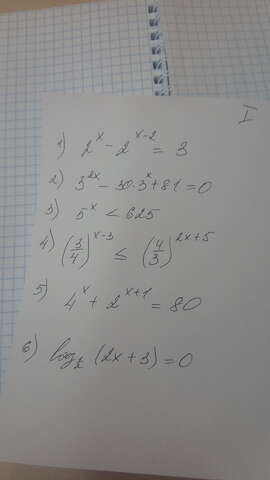 I
1) 2^x - 2^{x-2} = 3
2) 3^{2x} - 30·3^x + 81 = 0
3) 5^x < 625
4) (3/4)^{x-3} ≤ (4/3)^{2x+5}
5) 4^x + 2^{x+1} = 80
6) log_2 (2x + 3) = 0